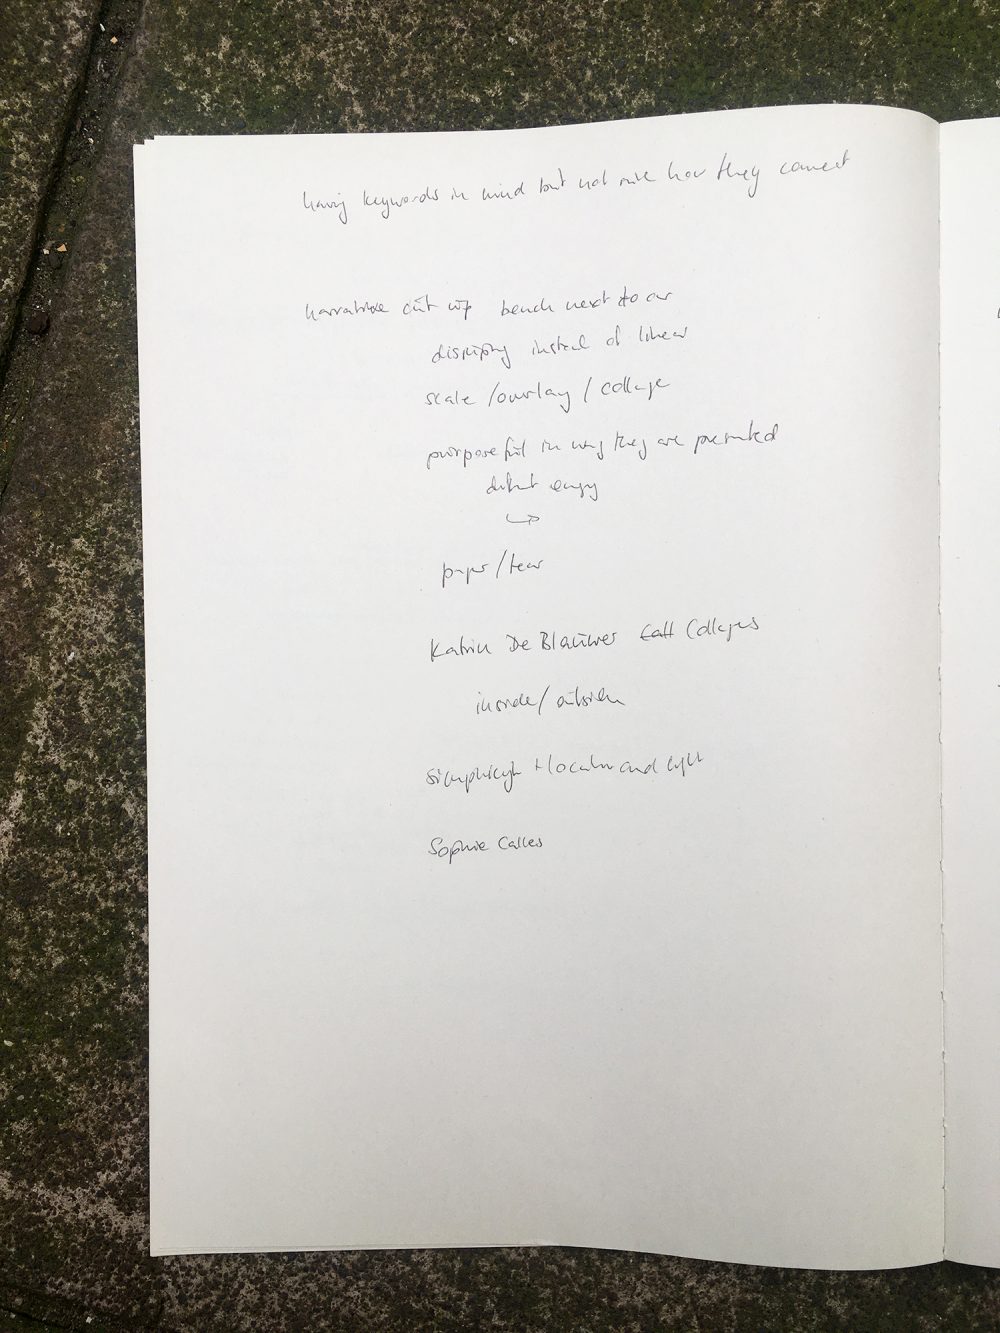 having keywords in mind but not sure how they connect
narrative cut up bench next to our
disrupting instead of linear
scale / overlay / collage
purposeful in way they are presented
paper / tear
Katrien De Blauwer Collages
inside / outside
simplicity + location and light
Sophie Calles